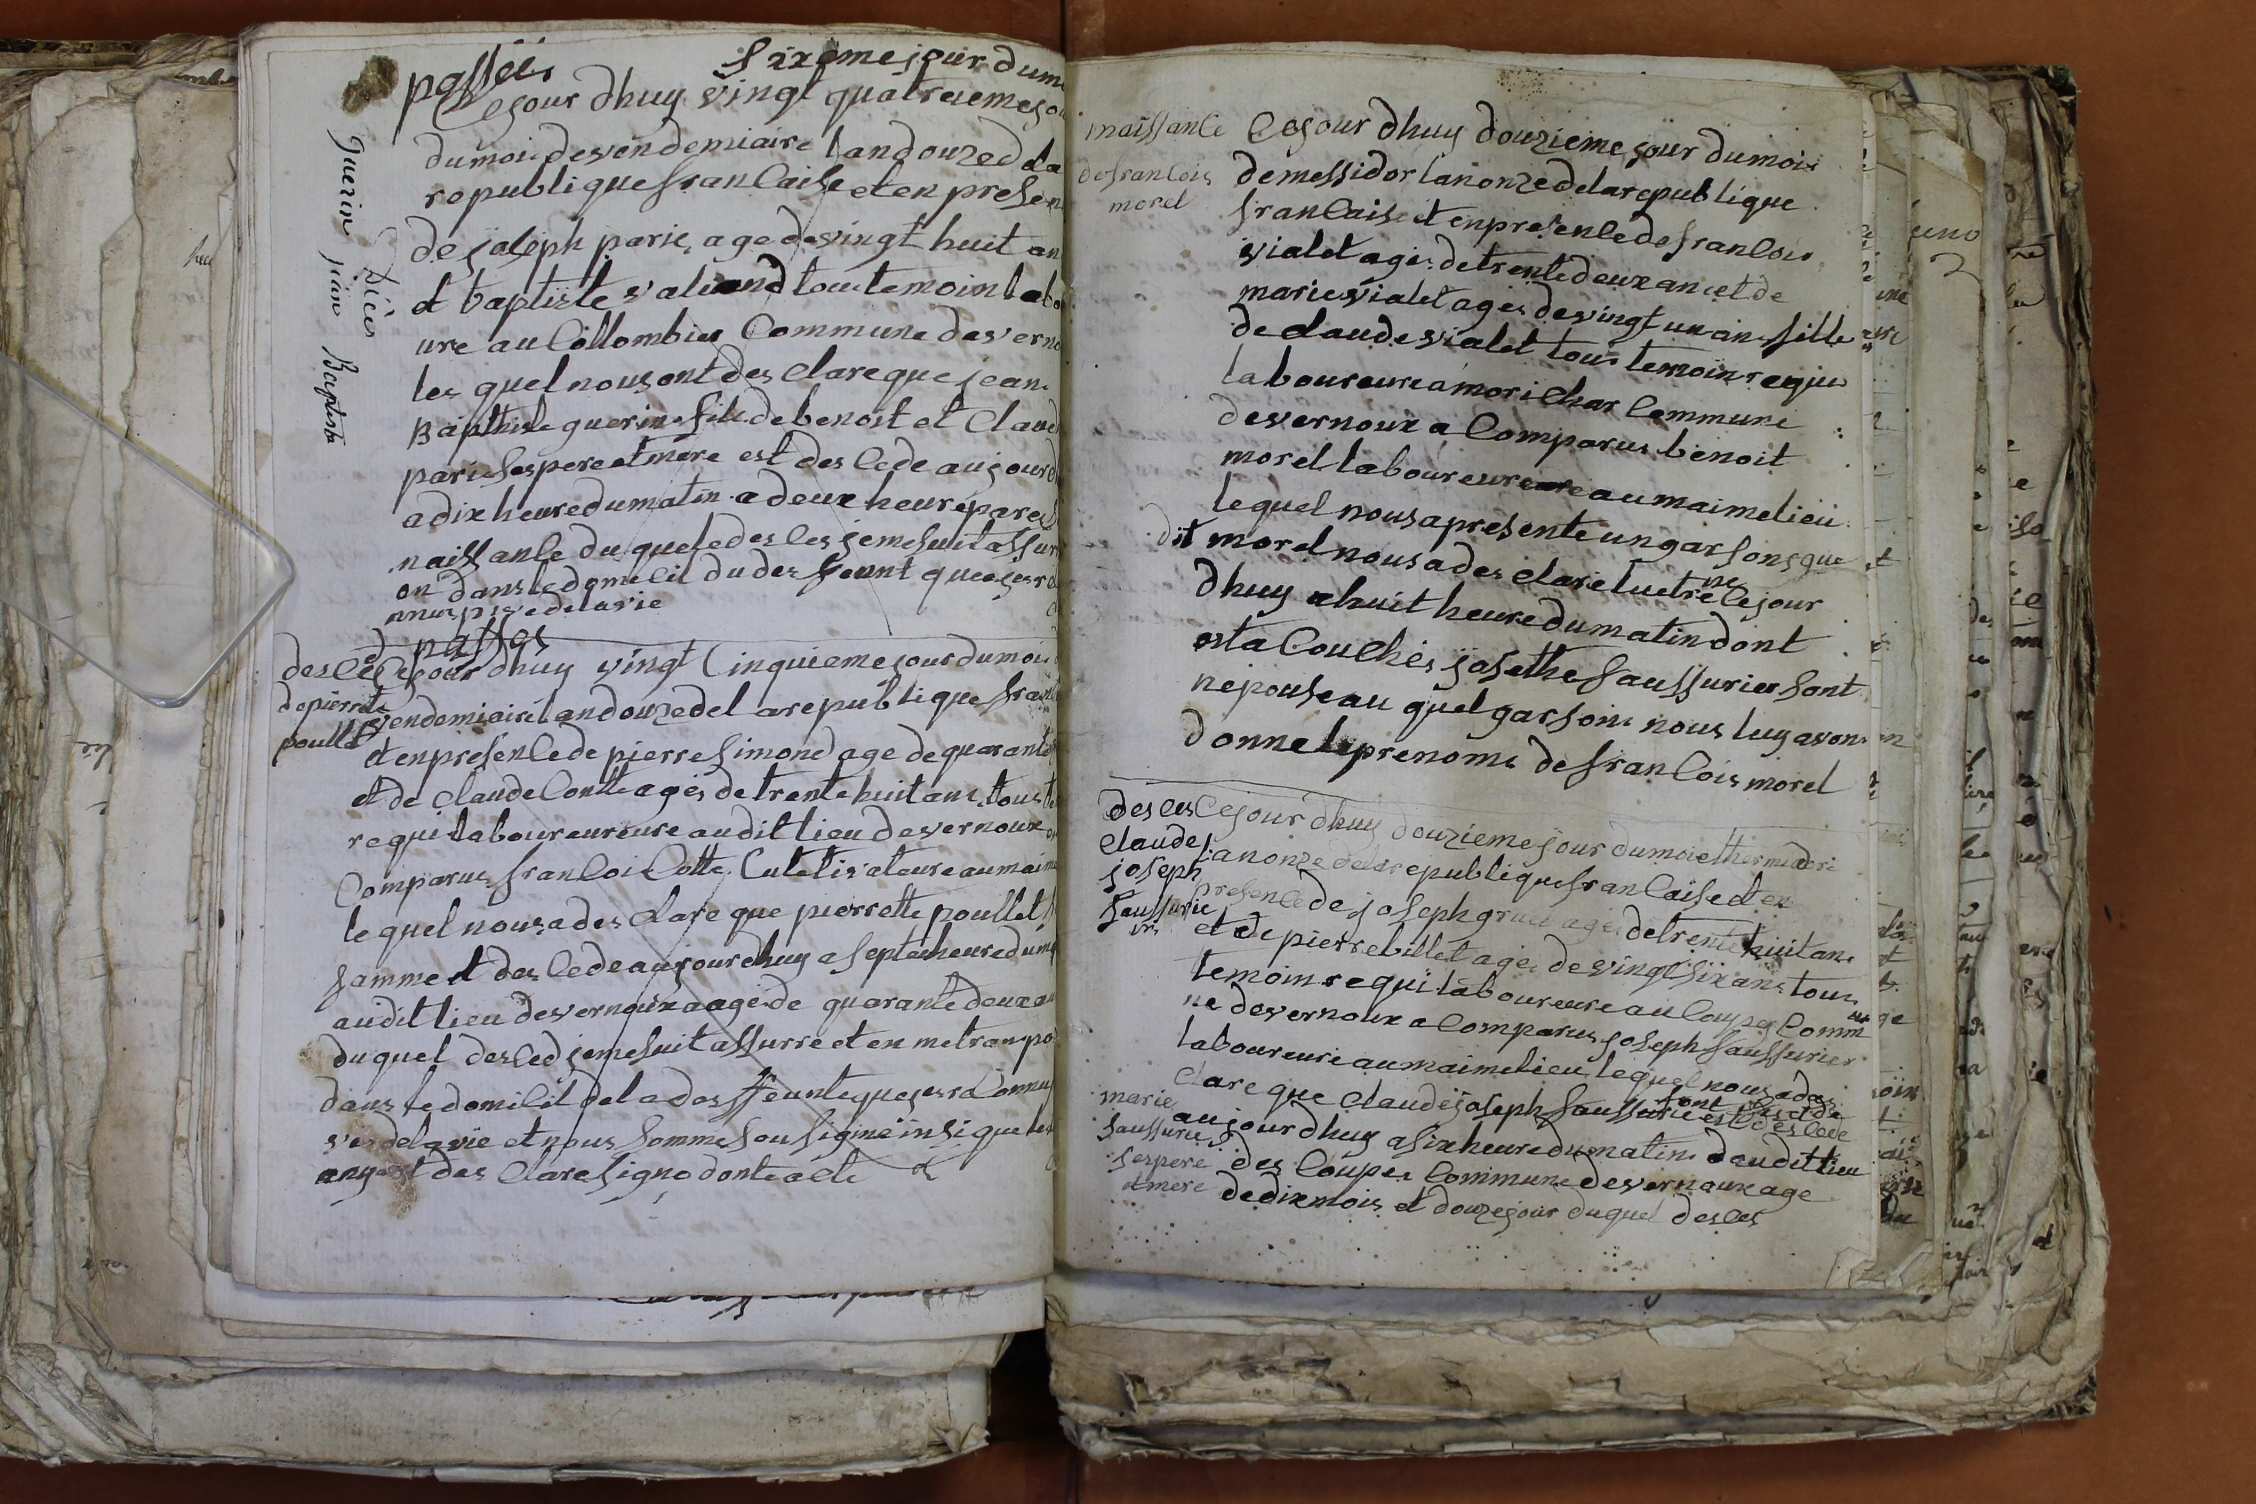 passéés sixeme jour dumo
Cejour dhuy vingt quatreiemejou
dumoi devendemiaire landouzed d la
republique francaise et en presen
de joseph parie age de vingt huit an
et baptiste valiand tou temoin labo
ure au Collombier Commune de verno
les quel nous ont des Clare que jean
Bapthiste guerin fils de benoit et Claud
parie ses pere et mere est des cede aujourd
a dix heure du matin a deux heure pares
naissance du quel edes ces jeme suit assur
on dans le domicil du des feunt que ges
vie de la vie
Guerin jean Baptiste
Décès
passes
desces Cejour dhuy vingt Cinquieme jour dumoi
de pierrette vendemiaire landouze del a republique fran
poullet
et en presence de pierre simond age de quarante
et de Claude Contte ages de trente huit ans tous te
requi laboureureure audit lieu de vernoux
Comparus francoi Cotte Cultetivateure au maim
le quel nous a des Clare que pierrette poullet
famme et des cede aujourdhuy a septe heure du m
audit lieu de vernoux a age de quarante deux an
du quel desced jeme suit assurre et en metranpo
dans le domicil de la des ffeunte que ges ra Connu
ve de la vie et nous sommes sou signé insi que les
ont des Clare signe dont acte
naissance Cejour dhuy douzieme jour dumoi
de francois de messidor lan onze de la republique
morel francaise et en presence de francois
vialet ages de trente deux an et de
marie vialet ages de vingt un an fille
de Claude vialet tous temoin requi
laboureure a morichar Commune
de vernoux a Comparus benoit
morel laboureure au maime lieu
le quel nous a presente un garson que
dit morel nous a des Clare luetre ne cejour
dhuy a huit heure du matin dont
est a Couches josethe Saussurier sont
nepouse au quel garson nous luy avon
donne le prenoms de francois morel
desces Cejour dhuy douzieme jour du moi thermidor
Claude lan onze de la republique francaise et en
joseph presence de joseph gruel ages de trente huit an
Saussurie et de pierre billet ages de vingt six ans tous
temoin requi laboureure au Coupes Commu
ne de vernoux a Comparus joseph Saussurier
laboureure au maime lieu lequel nous a des
Clare que Claude joseph Saussurie sont fils est des cede
marie aujourdhuy a six heure du matin d audit lieu
Saussurie des Coupes Commune de vernoux age
ses pere de dix mois et douze jour du quel desces
et mere